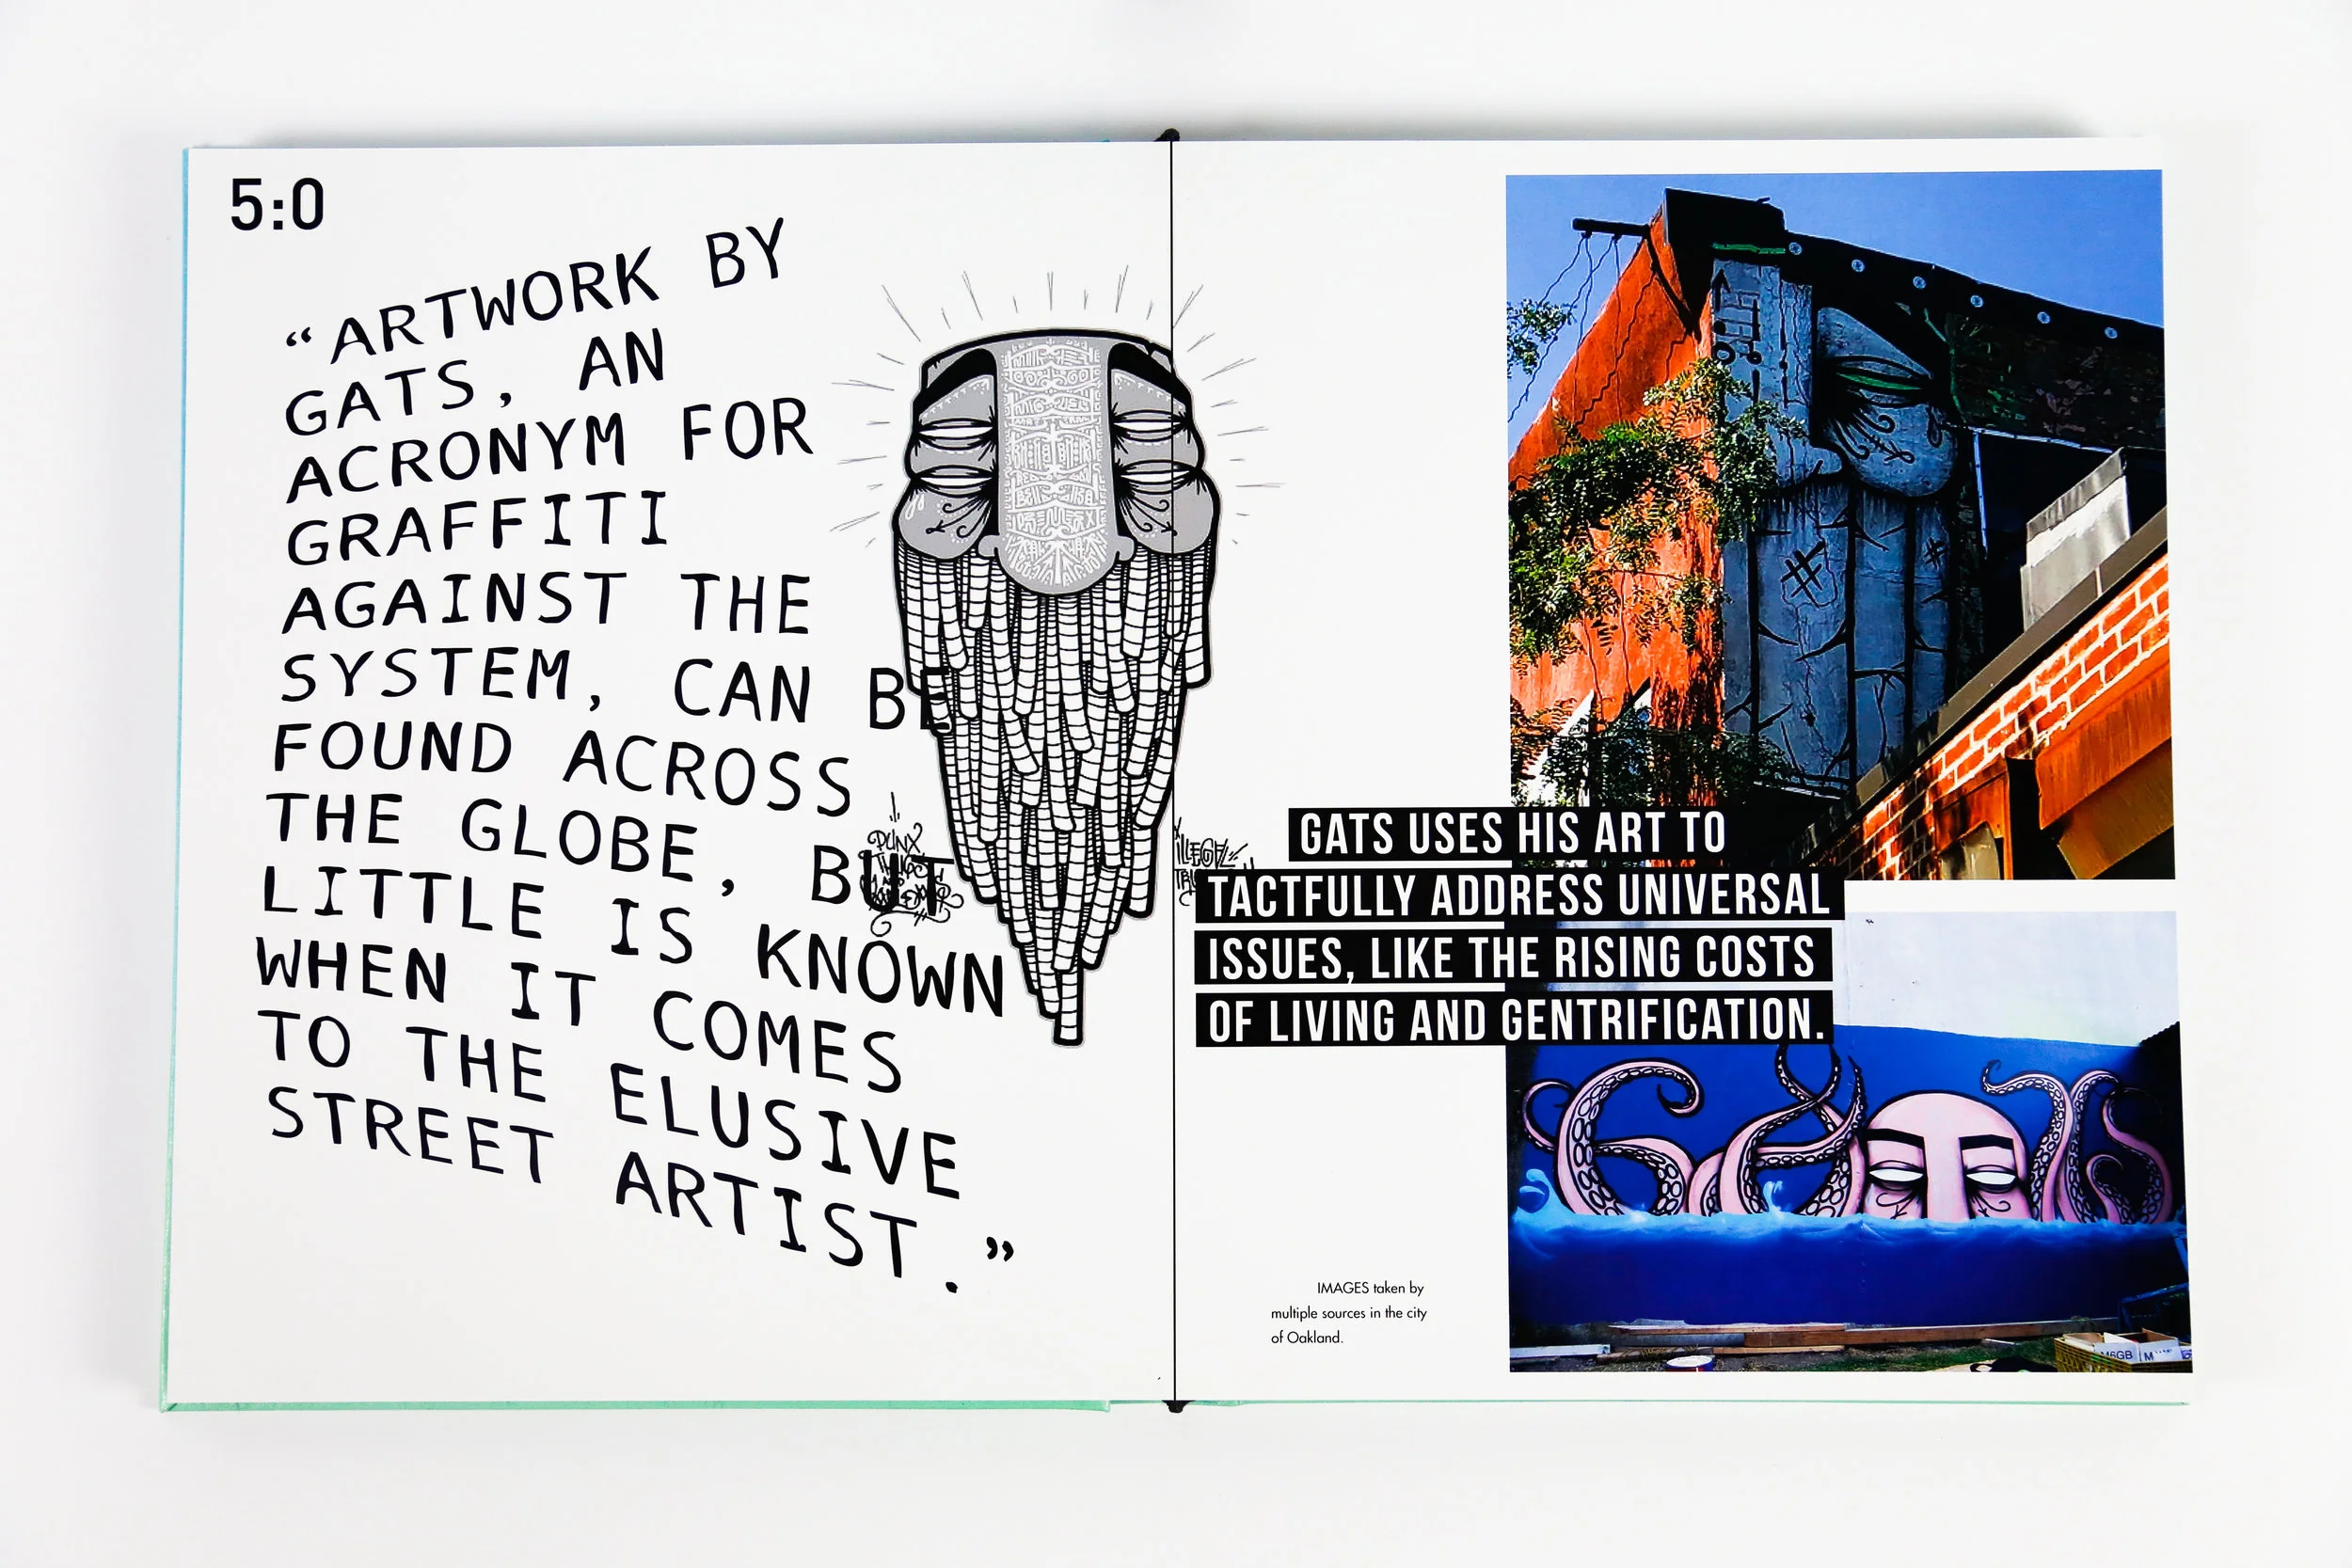 5:0
“ARTWORK BY
GATS, AN
ACRONYM FOR
GRAFFITI
AGAINST THE
SYSTEM, CAN BE
FOUND ACROSS
THE GLOBE, BUT
LITTLE IS KNOWN
WHEN IT COMES
TO THE ELUSIVE
STREET ARTIST.”
PUNX
ILLEGAL
GATS USES HIS ART TO
TACTFULLY ADDRESS UNIVERSAL
ISSUES, LIKE THE RISING COSTS
OF LIVING AND GENTRIFICATION.
GATS
M6GB
IMAGES taken by
multiple sources in the city
of Oakland.